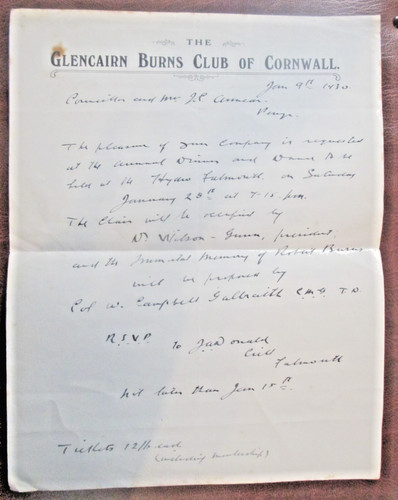 THE
GLENCAIRN BURNS CLUB OF CORNWALL.
Jan 9th 1930
Councillor and Mrs J.C.
The pleasure of your Company is requested
at the annual Dinner and Dance to be
held at the Hydro Falmouth, on Saturday
January 25th at 7-15 p.m.
The Chair will be occupied by
Dr Wilson-Gunn, president,
and the Immortal Memory of Robert Burns
will be proposed by
Col W. Campbell Galbraith C.M.G T.D
R.S.V.P. to
Falmouth
not later than Jan 18th.
Tickets 12/6 each
(including membership)